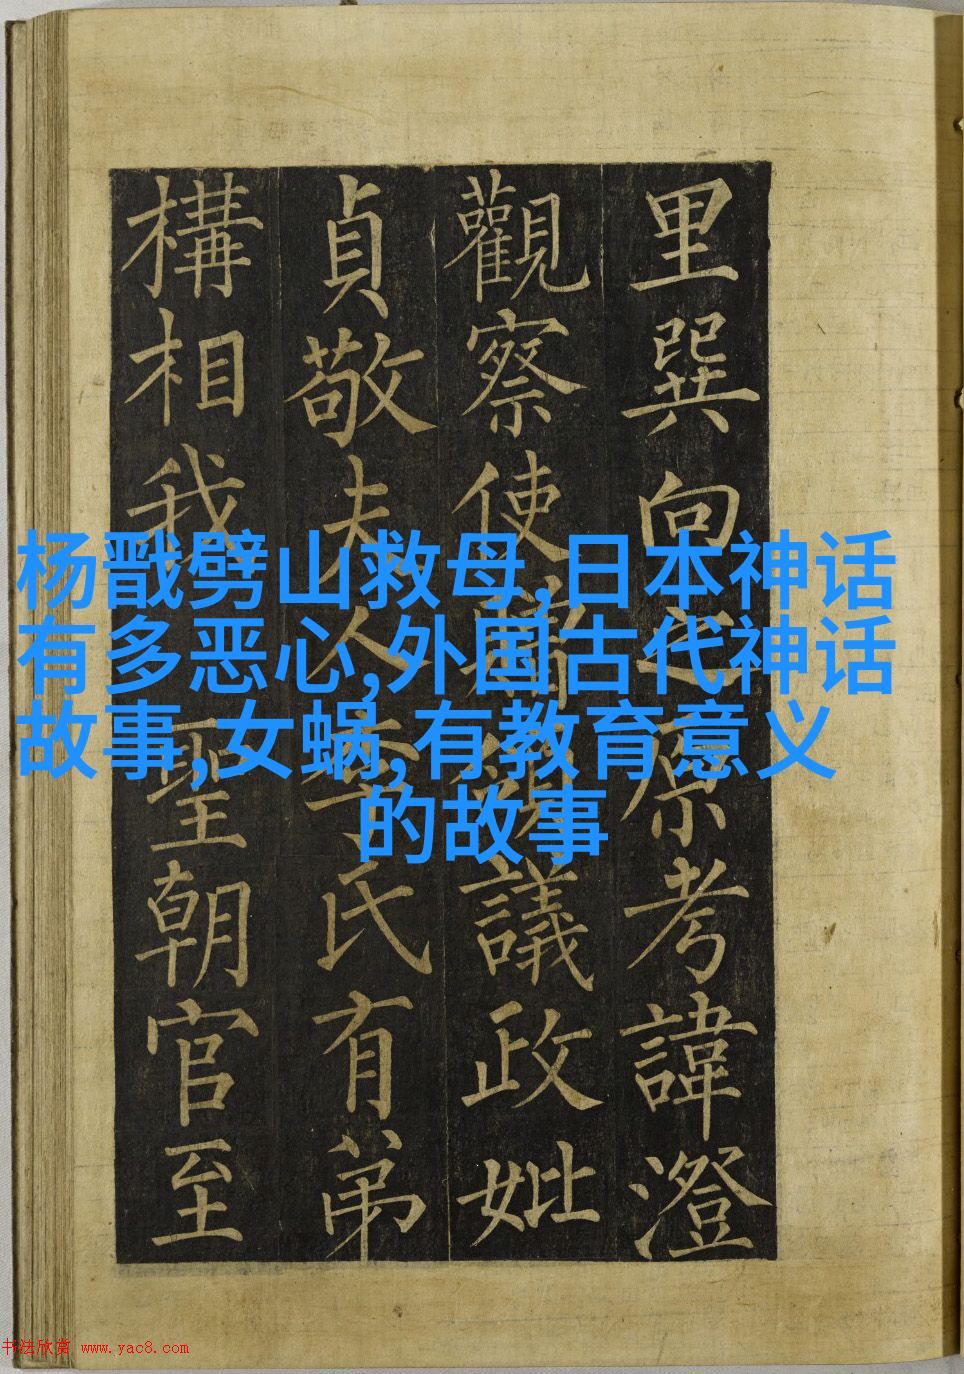 杨戬劈山救母,日本神话
有多恶心,外国古代神话
故事,女蜗,有教育意义
的故事
里巽向之原考諱澄
觀察使贈領議政妣
貞敬夫人李氏有弟
構相我聖朝官至
书法欣赏 www.yac8.com